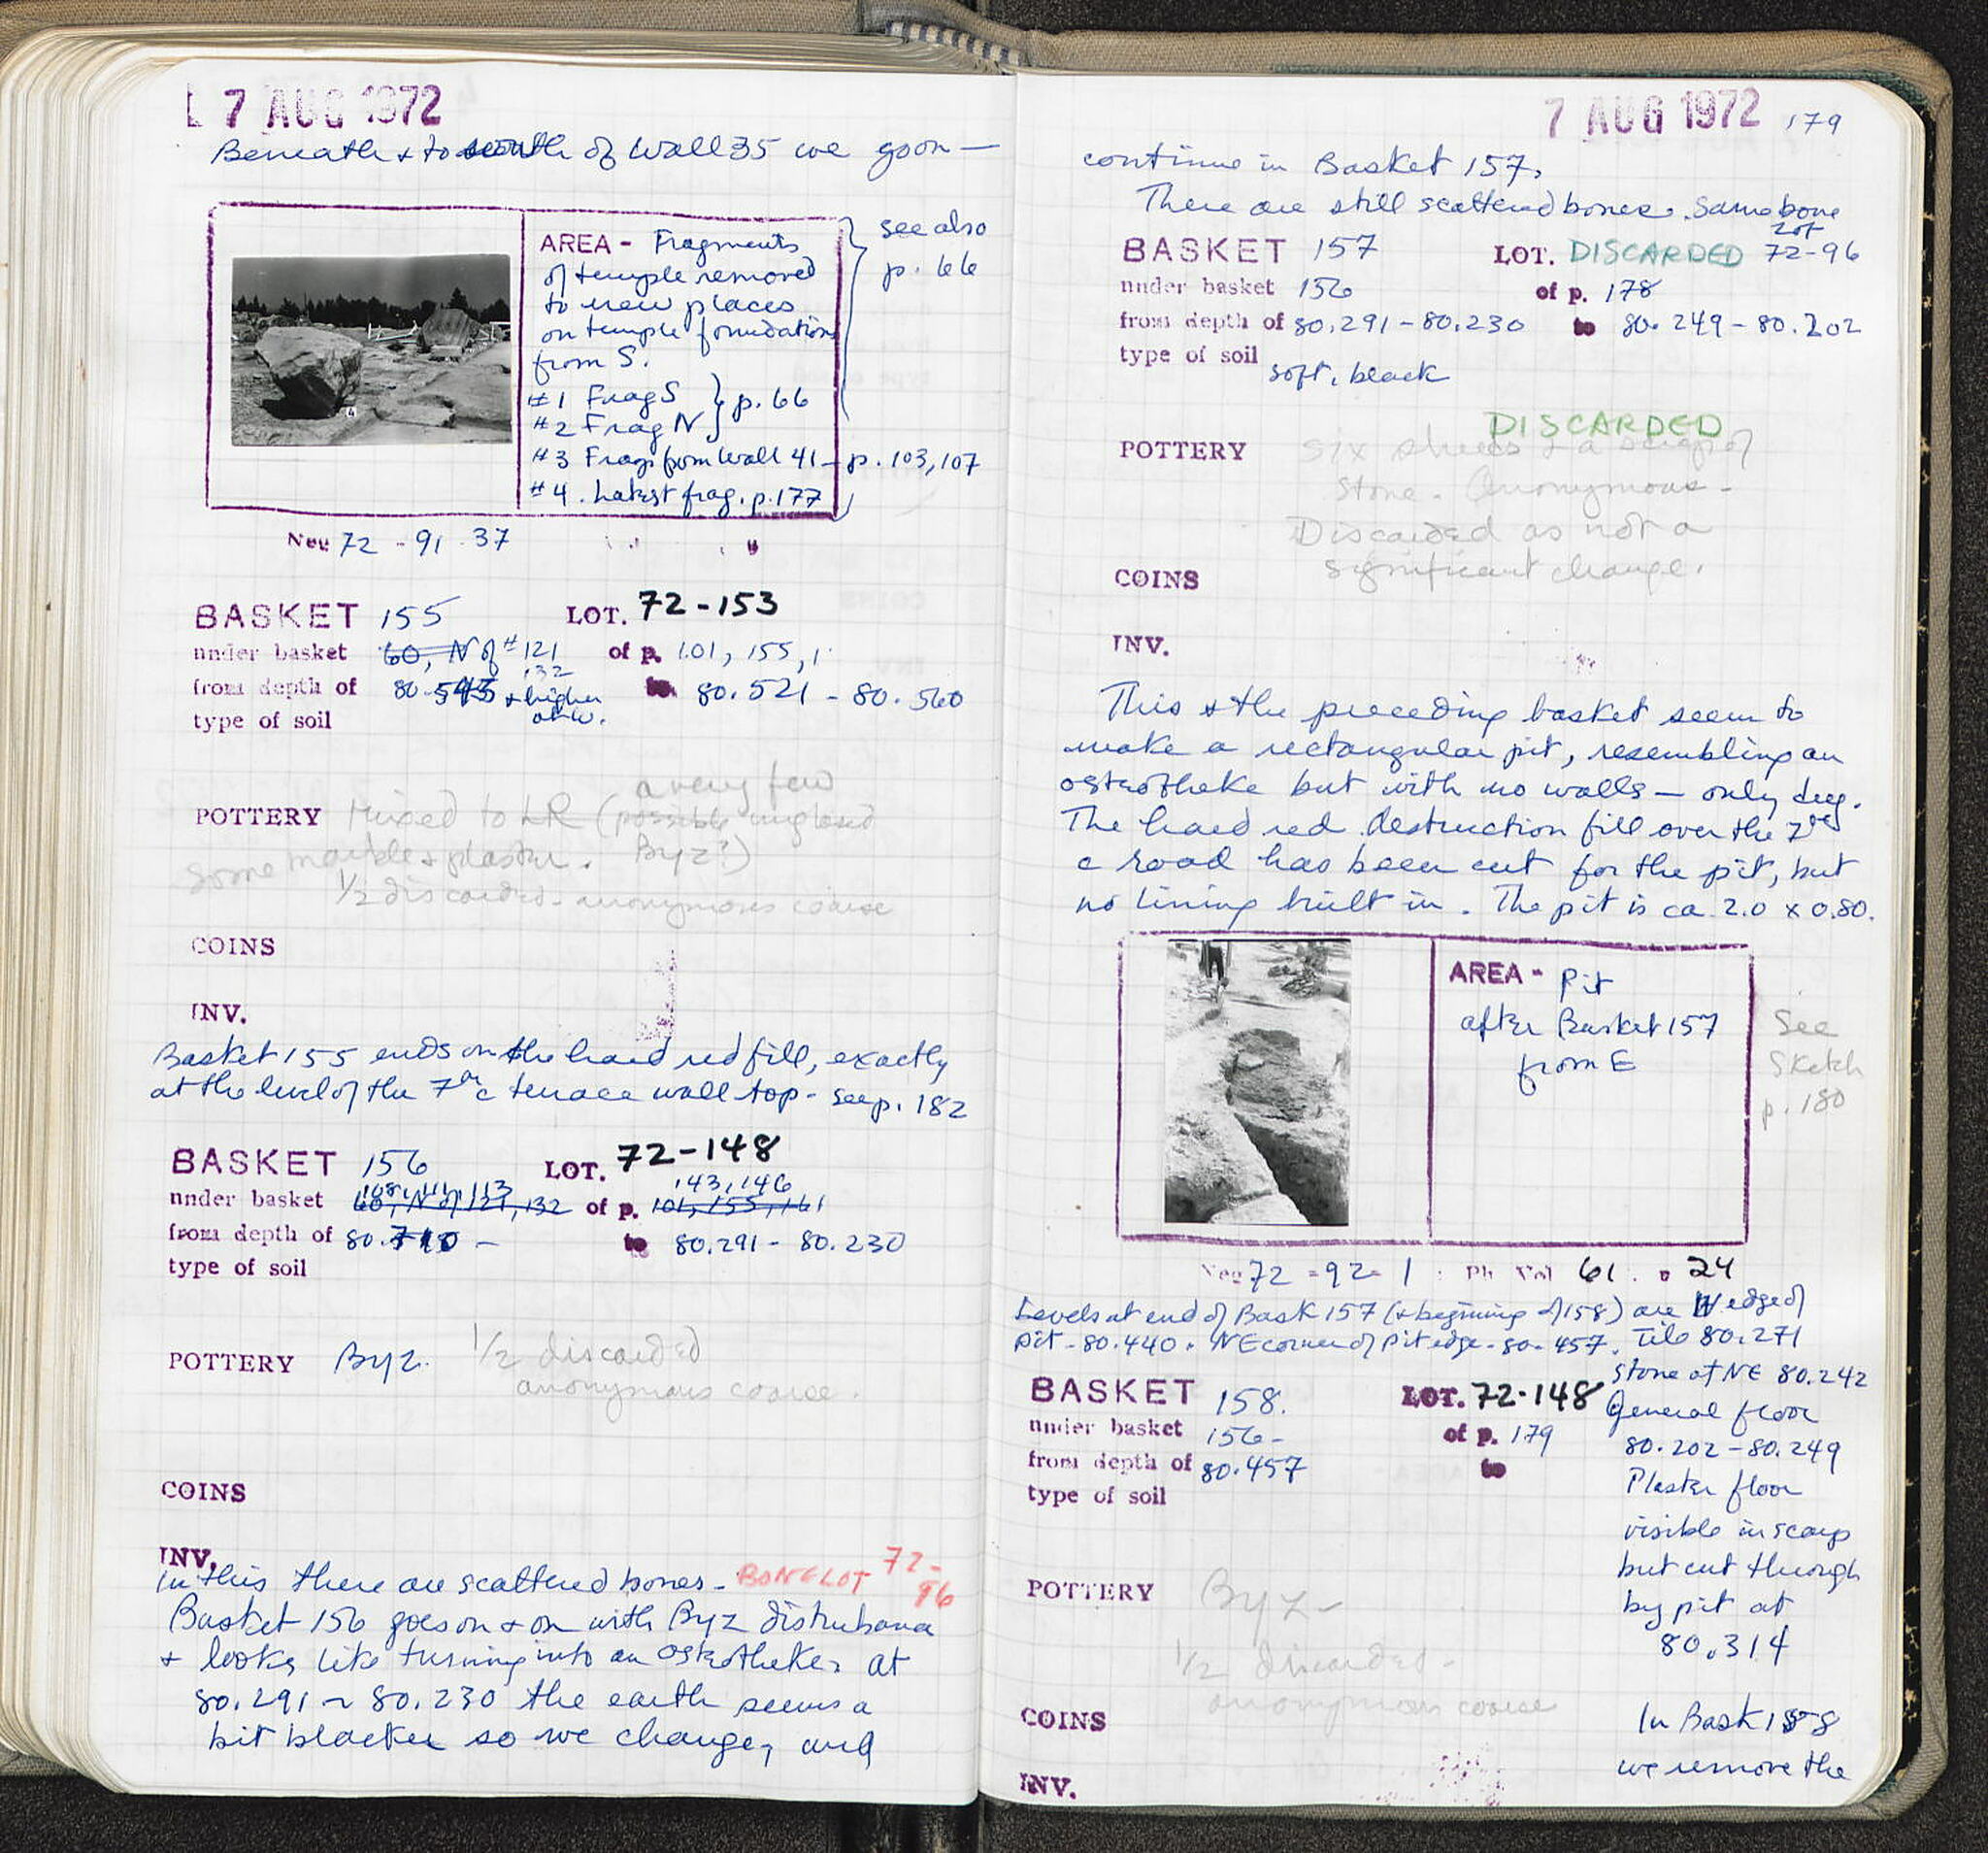 7 AUG 1972
Beneath & to south of Wall 35 we go on —
AREA - Fragments
of temple removed
to new places
on temple foundations
from S.
#1 Frag S
#2 Frag N } p. 66
#3 Frags from Wall 41 - p. 103, 107
#4. Latest frag. p. 177
see also
p. 66
4
Neg 72 - 91 - 37
BASKET 155 LOT. 72-153
under basket 60, N of #121 of p. 101, 155, 1
132
from depth of 80.545 & higher to 80.521 - 80.560
at W.
type of soil
a very few
POTTERY Mixed to LR (possible unglazed
some marble & plaster. Byz?)
1/2 discarded - anonymous coarse
COINS
INV.
Basket 155 ends on the hard red fill, exactly
at the level of the 7th c terrace wall top - see p. 182
BASKET 156 LOT. 72-148
108, 111, 113 143, 146
under basket 60, N of 121, 132 of p. 101, 155, 161
from depth of 80.710 - to 80.291 - 80.230
type of soil
POTTERY Byz. 1/2 discarded
anonymous coarse.
COINS
INV.
In this there are scattered bones - BONE LOT 72-
96
Basket 156 goes on & on with Byz disturbance
& looks like turning into an osteotheke. at
80.291 ~ 80.230 the earth seems a
bit blacker so we change, and
7 AUG 1972 179
continue in Basket 157.
There are still scattered bones. Same bone
lot
BASKET 157 LOT. DISCARDED 72-96
under basket 156 of p. 178
from depth of 80.291 - 80.230 to 80.249 - 80.202
type of soil soft, black
DISCARDED
POTTERY Six sherds & a scrap of
stone. Anonymous -
Discarded as not a
significant change.
COINS
INV.
This & the preceding basket seem to
make a rectangular pit, resembling an
osteotheke but with no walls — only dug.
The hard red destruction fill over the 7th
c road has been cut for the pit, but
no lining built in. The pit is ca. 2.0 x 0.80.
AREA - Pit
after Basket 157
from E
See
Sketch
p. 180
Neg 72 - 92 - 1 : Ph Vol 61. p 24
Levels at end of Bask 157 (& beginning of 158) are W edge of
pit - 80.440. NE corner of Pit edge - 80.457. Tile 80.271
stone at NE 80.242
BASKET 158. LOT. 72-148
under basket 156- of p. 179
from depth of 80.457 to
type of soil
General floor
80.202 - 80.249
Plaster floor
visible in scarp
but cut through
by pit at
80.314
POTTERY Byz -
1/2 discarded -
anonymous coarse
COINS
INV.
In Bask 158
we remove the